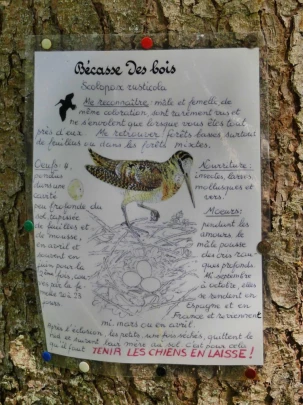 Bécasse des bois
Scolopax rusticola
Me reconnaître: mâle et femelle, de
même coloration, sont rarement vus et
ne s'envolent que lorsque vous êtes tout
près d'eux. Me retrouver: forêts basses surtout
de feuillus ou dans les forêts mixtes.
Oeufs: 4,
pondus
dans une
cavité
peu profonde du
sol tapissée
de feuilles et
de mousse,
en avril et
souvent en
juin pour la
2ème fois,
par la fe-
Nourriture:
insectes, larves,
mollusques et
vers.
Moeurs:
pendant les
amours, le
mâle pousse
des cris rau-
ques profonds.
De septembre
à octobre, elles
se rendent en
Espagne et en
France et reviennent
mi-mars ou en avril.
Après l'éclosion, les petits, une fois séchés, quittent le
nid et suivent leur mère au sol. c'est pour cela
qu'il faut TENIR LES CHIENS EN LAISSE!